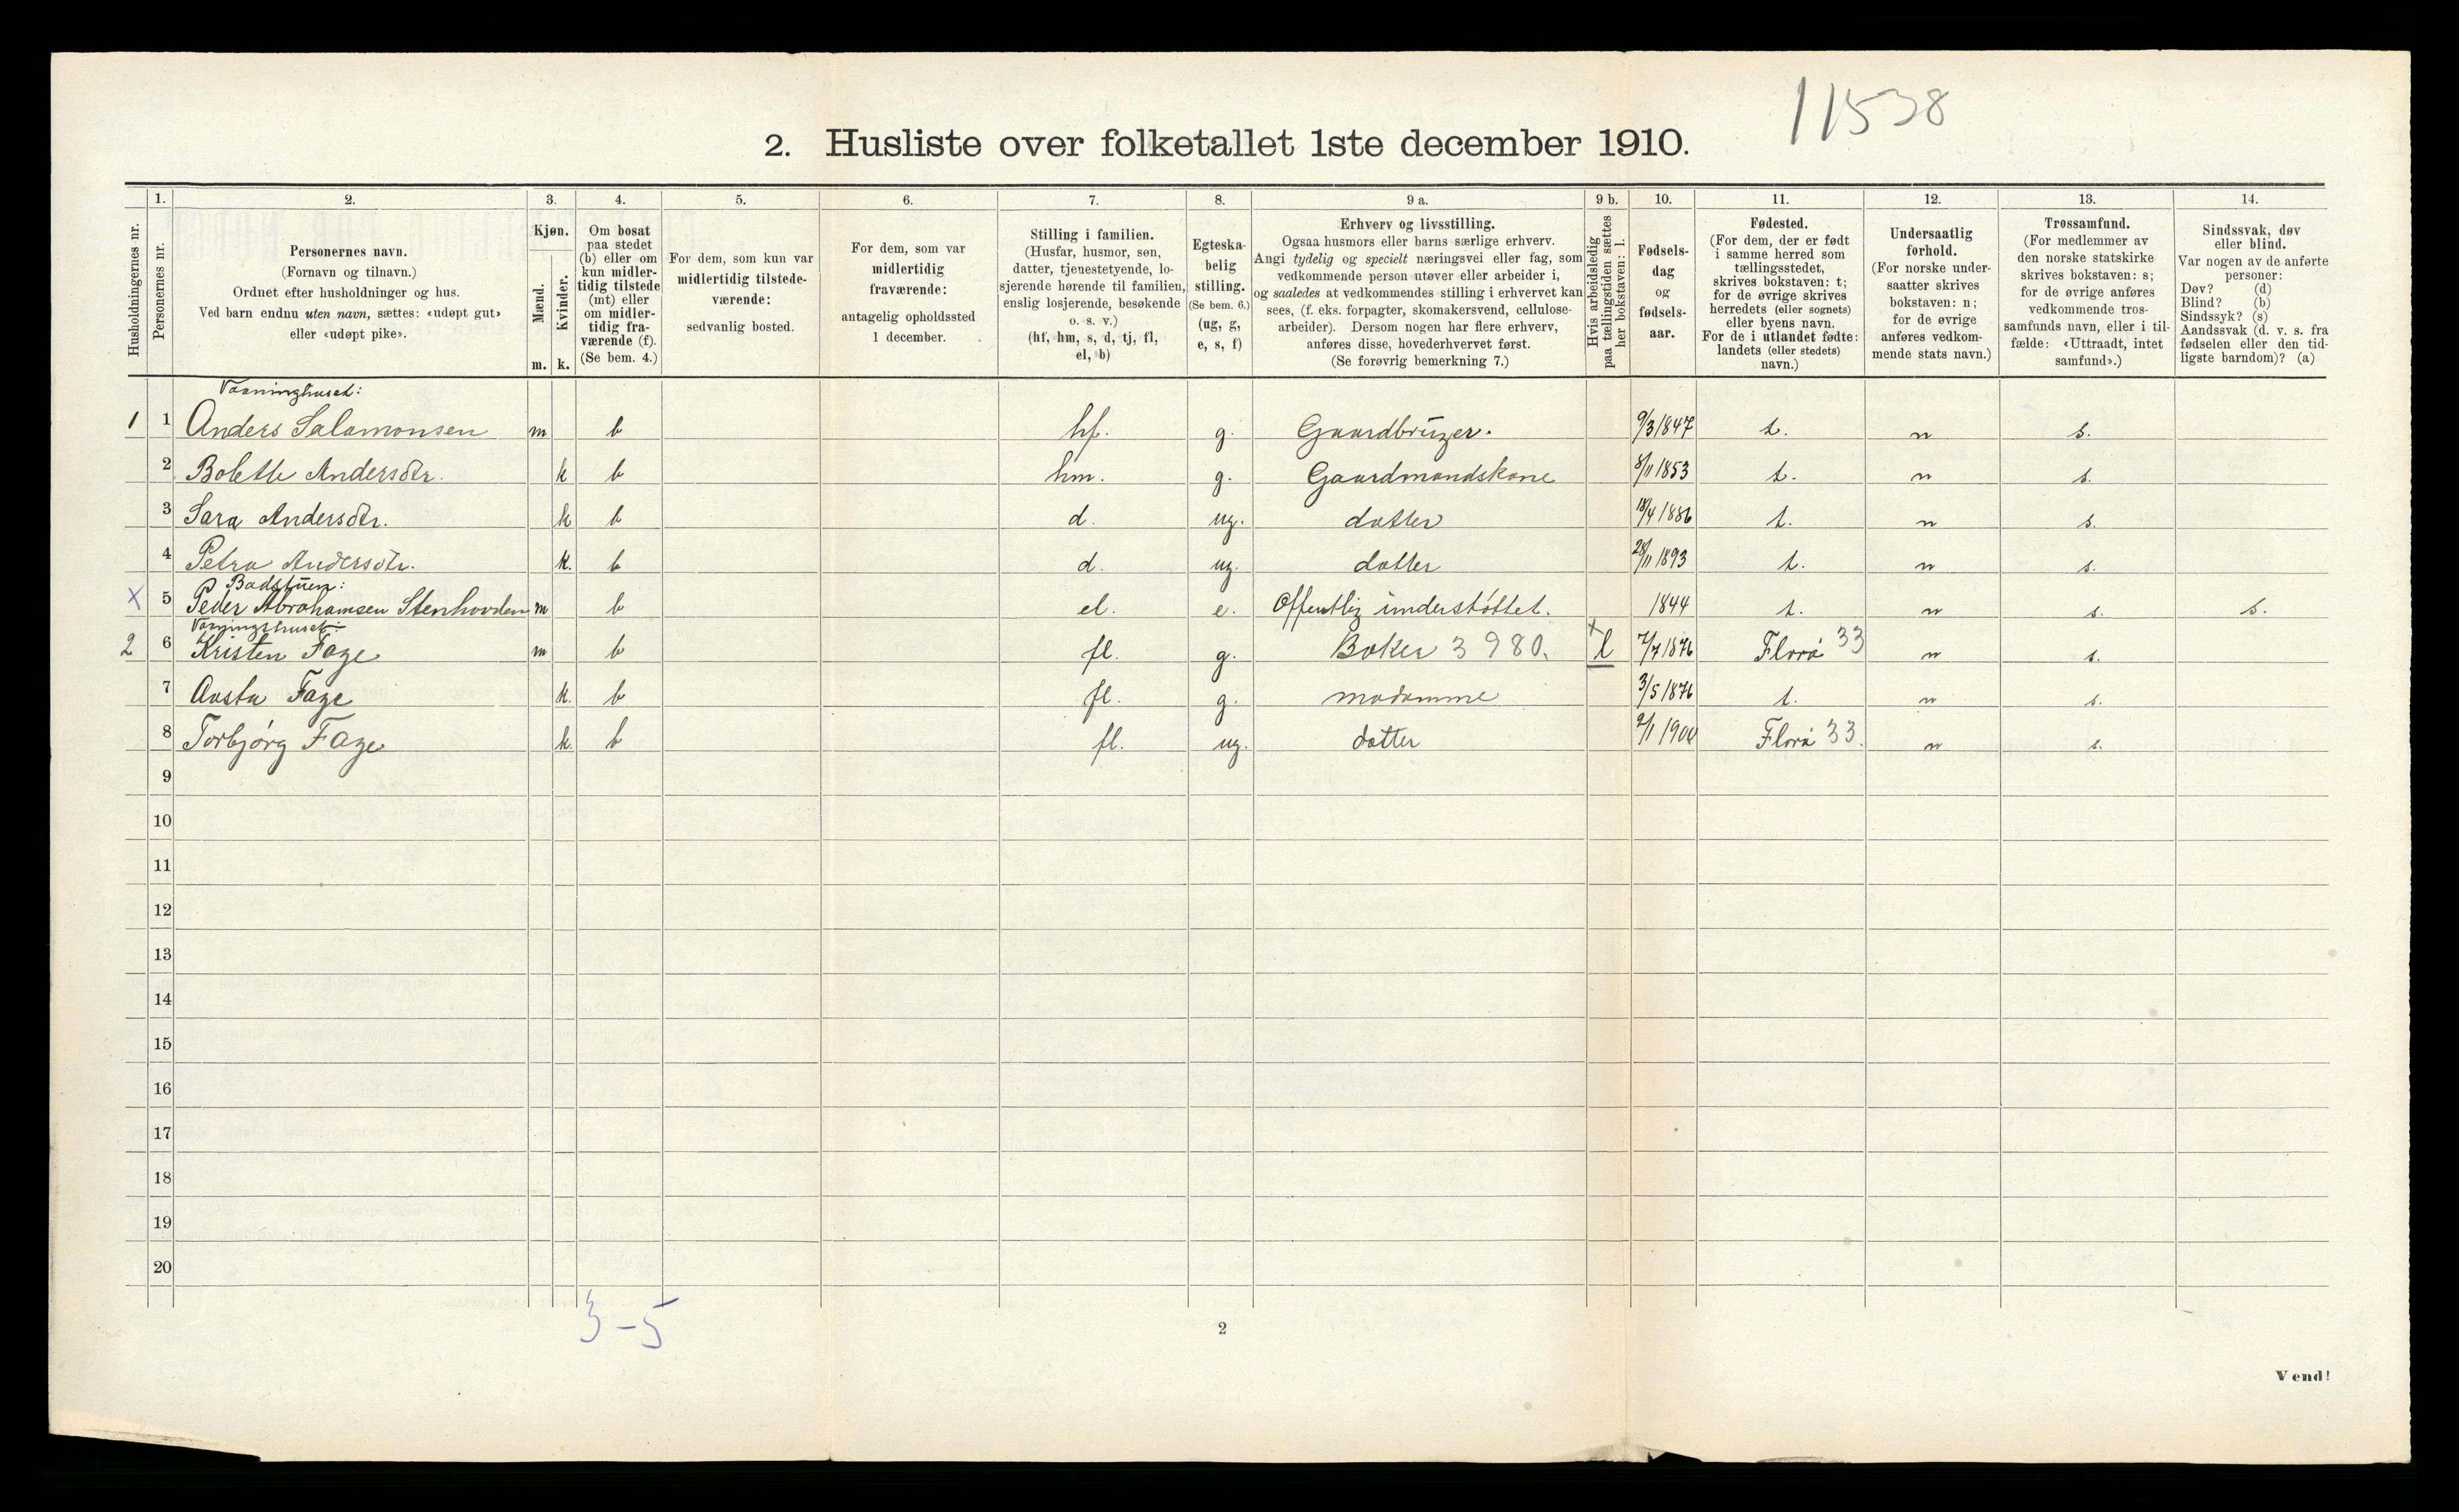 11538
2. Husliste over folketallet 1ste december 1910.
Husholdningernes nr.
1.
Personernes nr.
2.
Personernes navn.
(Fornavn og tilnavn.)
Ordnet efter husholdninger og hus.
Ved barn endnu uten navn, sættes: «udøpt gut»
eller «udøpt pike».
3.
Kjøn.
Mænd.
Kvinder.
m. k.
4.
Om bosat
paa stedet
(b) eller om
kun midler-
tidig tilstede
(mt) eller
om midler-
tidig fra-
værende (f).
(Se bem. 4.)
5.
For dem, som kun var
midlertidig tilstede-
værende:
sedvanlig bosted.
6.
For dem, som var
midlertidig
fraværende:
antagelig opholdssted
1 december.
7.
Stilling i familien.
(Husfar, husmor, søn,
datter, tjenestetyende, lo-
sjerende hørende til familien,
enslig losjerende, besøkende
o. s. v.)
(hf, hm, s, d, tj, fl,
el, b)
8.
Egteska-
belig
stilling.
(Se bem. 6.)
(ug, g,
e, s, f)
9 a.
Erhverv og livsstilling.
Ogsaa husmors eller barns særlige erhverv.
Angi tydelig og specielt næringsvei eller fag, som
vedkommende person utøver eller arbeider i,
og saaledes at vedkommendes stilling i erhvervet kan
sees, (f. eks. forpagter, skomakersvend, cellulose-
arbeider). Dersom nogen har flere erhverv,
anføres disse, hovederhvervet først.
(Se forøvrig bemerkning 7.)
9 b.
Hvis arbeidsledig
paa tællingstiden sættes
her bokstaven: l.
10.
Fødsels-
dag
og
fødsels-
aar.
11.
Fødested.
(For dem, der er født
i samme herred som
tællingsstedet,
skrives bokstaven: t;
for de øvrige skrives
herredets (eller sognets)
eller byens navn.
For de i utlandet fødte:
landets (eller stedets)
navn.)
12.
Undersaatlig
forhold.
(For norske under-
saatter skrives
bokstaven: n;
for de øvrige
anføres vedkom-
mende stats navn.)
13.
Trossamfund.
(For medlemmer av
den norske statskirke
skrives bokstaven: s;
for de øvrige anføres
vedkommende tros-
samfunds navn, eller i til-
fælde: «Uttraadt, intet
samfund».)
14.
Sindssvak, døv
eller blind.
Var nogen av de anførte
personer:
Døv? (d)
Blind? (b)
Sindssyk? (s)
Aandssvak (d. v. s. fra
fødselen eller den tid-
ligste barndom)? (a)
Vaaninghuset:
1 1 Anders Salamonsen m b hf. g. Gaardbruger. 9/3 1847 t. n s.
2 Bolette Andersdtr. k b hm. g. Gaardmandskone 8/11 1853 t. n s.
3 Sara Andersdtr. k b d. ug. datter 18/4 1886 t. n s.
4 Petra Andersdtr. k. b d. ug. datter 28/11 1893 t. n s.
Badstuen:
X 5 Peder Abrahamsen Stenhovden m b el. e. Offentlig understøttet. 1844 t. n s. s.
Vaaningshuset:
2 6 Kristen Fage m b fl. g. Baker 3 980. x l 7/7 1876 Florø 33 n s.
7 Aasta Fage k. b fl. g. madamme 3/5 1876 t. n s.
8 Torbjørg Fage k. b fl. ug. datter 9/1 1900 Florø 33. n s.
9
10
11
12
13
14
15
16
17
18
19
20
3-5
2
Vend!